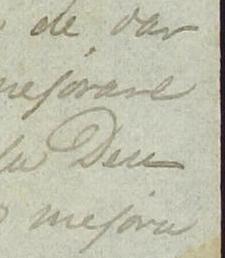 de dar
mejorare
la Deu
mejora